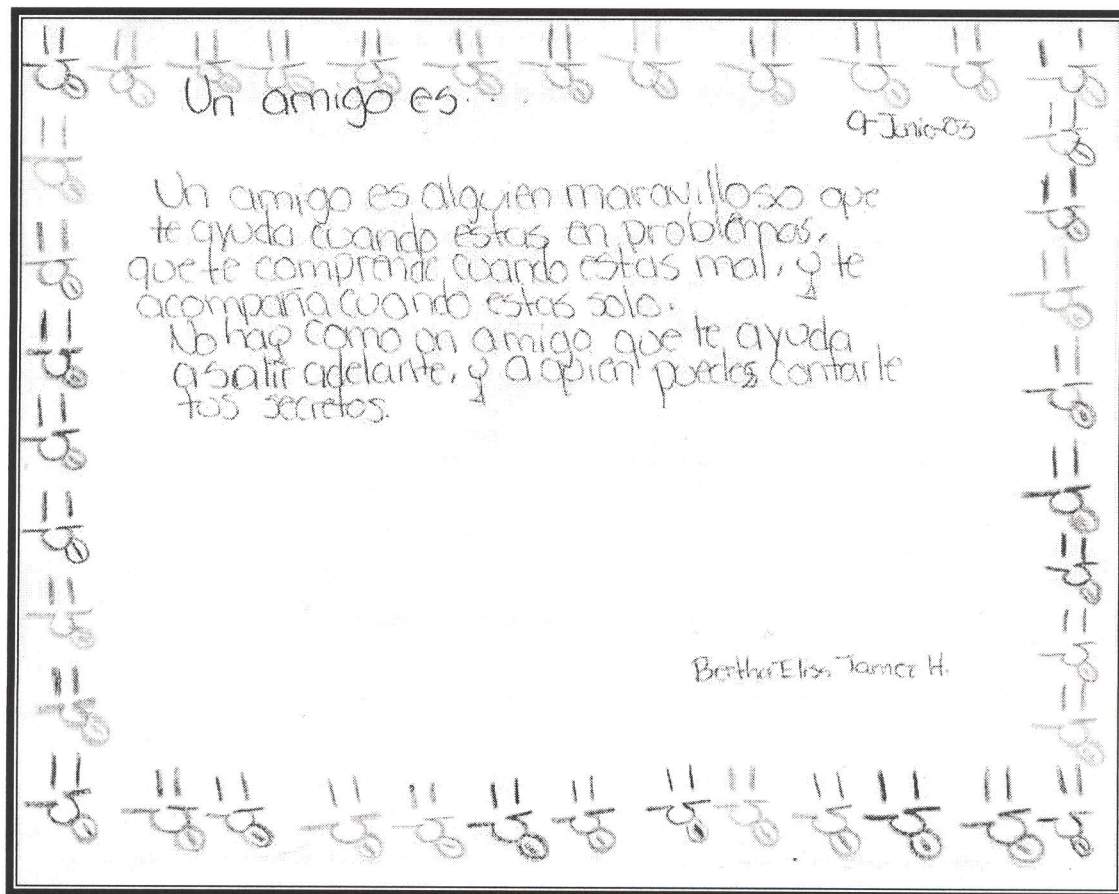 Un amigo es...
9-Junio-03
Un amigo es alguien maravilloso que
te ayuda cuando estas en problemas,
que te comprende cuando estas mal, y te
acompaña cuando estas solo.
No hay como un amigo que te ayuda
a salir adelante, y a quien puedes contarle
tus secretos.
Bertha Elisa H.